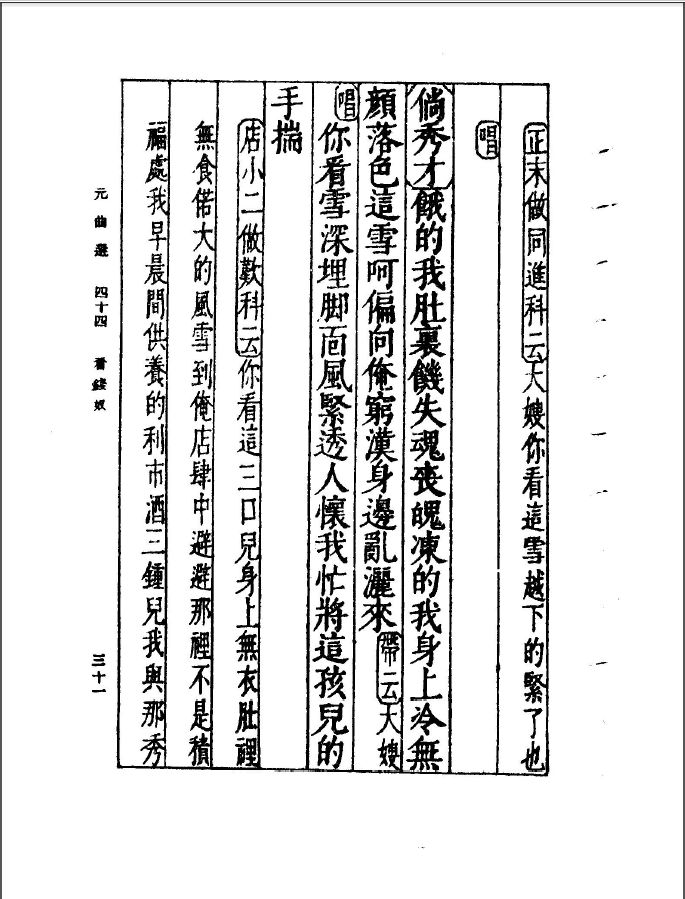 正末做同進科云大嫂你看這雪越下的緊了也
唱
倘秀才餓的我肚裏饑失魂喪魄凍的我身上冷無
顏落色這雪呵偏向俺窮漢身邊亂灑來帶云大嫂
唱你看雪深埋脚面風緊透人懷我忙將這孩兒的
手揣
店小二做歎科云你看這三口兒身上無衣肚裡
無食偌大的風雪到俺店肆中避避那裡不是積
福處我早晨間供養的利市酒三鍾兒我與那秀
元曲選 四十四 看錢奴
三十一